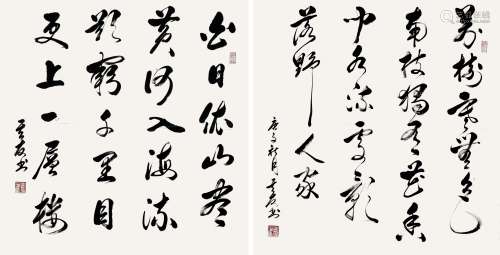 萬樹寒無色
南枝獨有花香
聞水流處影
落野人家
白日依山盡
黃河入海流
欲窮千里目
更上一層樓